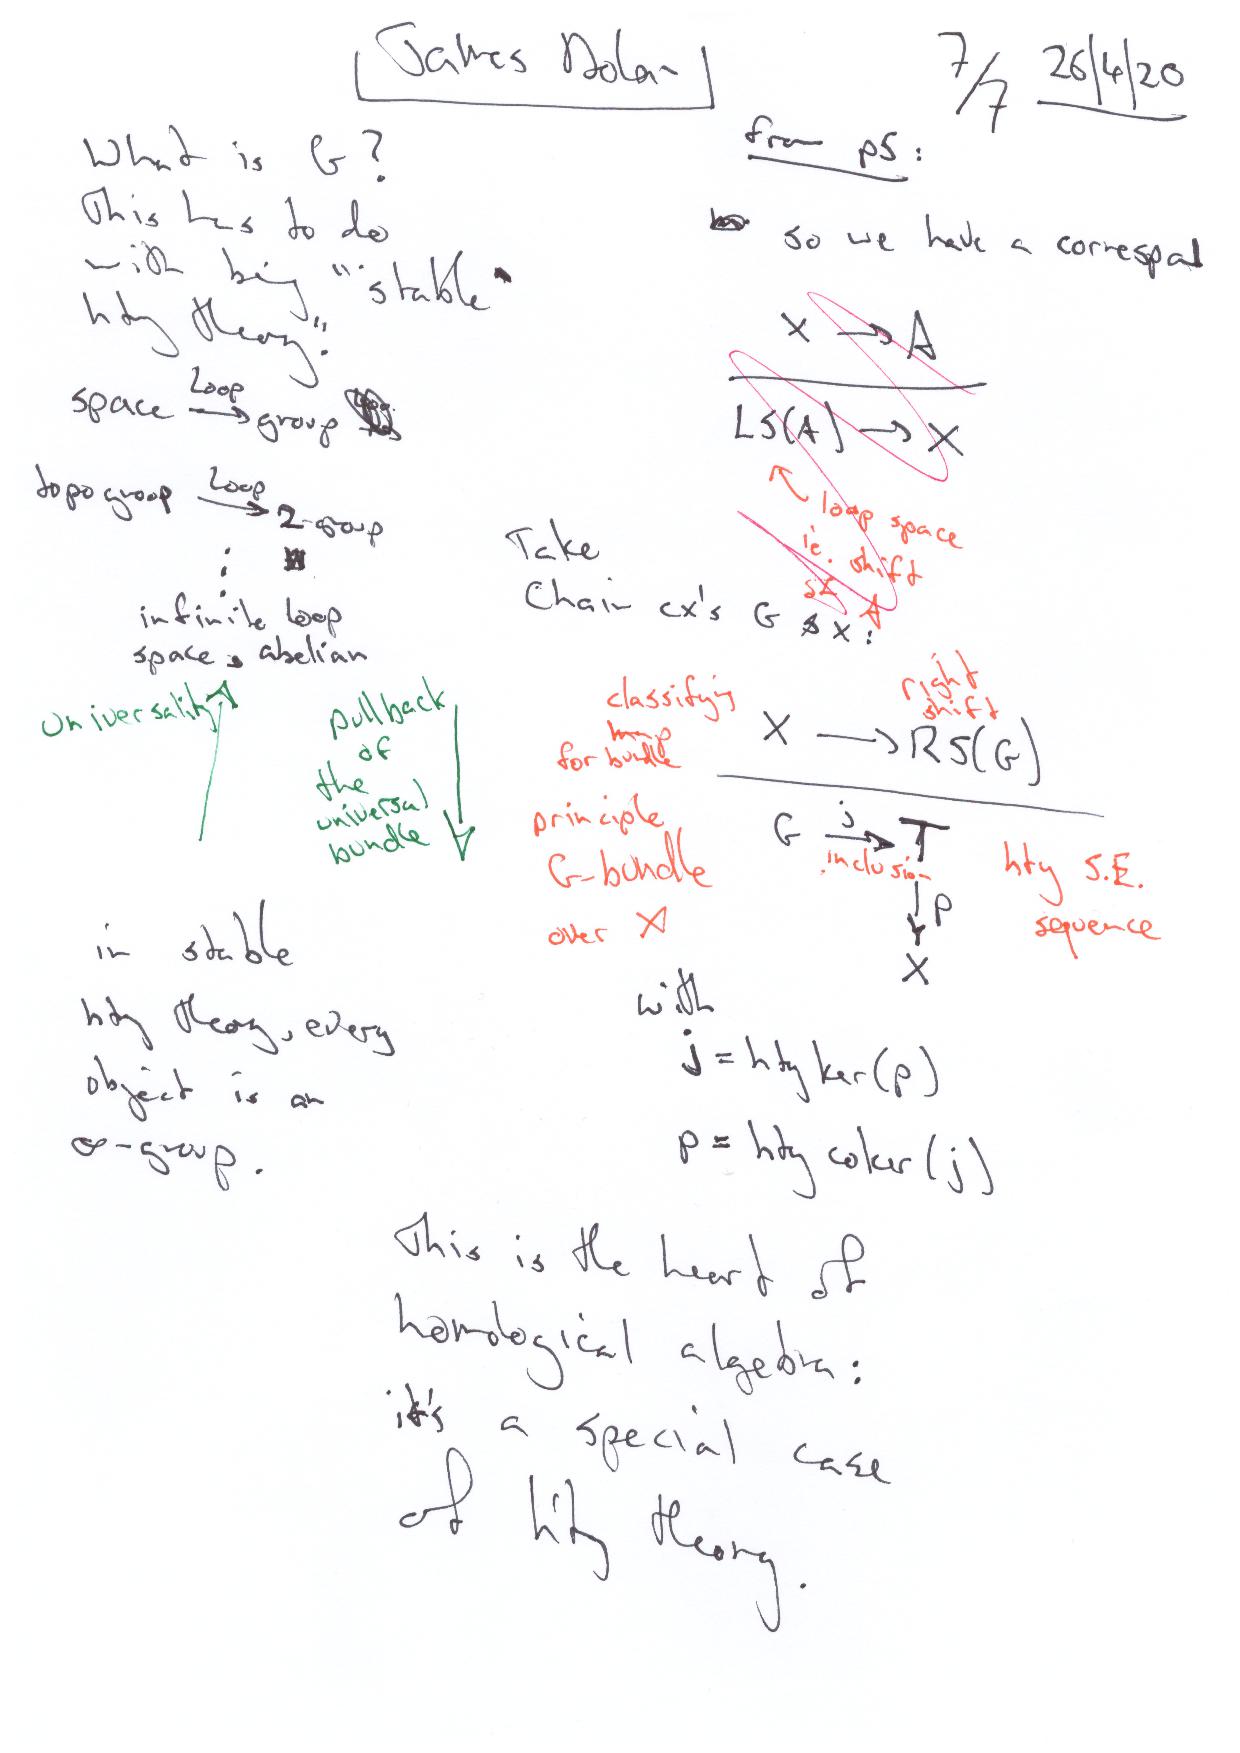 James Dolan
7/7 26/4/20
What is G?
This has to do
with being "stable"
hty theory".
space loop → group
topo group loop → 2-group
⋮
infinite loop
space, abelian
universality
pullback
of
the
universal
bundle
in stable
hty theory, every
object is an
∞-group.
from p5:
so we have a correspd
X → A
LS(A) → X
loop space
ie. shift
Take
Chain cx's G & X:
classifying
map
for bundle
right
shift
X → RS(G)
principle
G-bundle
over X
G j → T
inclusion
p
X
hty S.E.
sequence
with
j = hty ker(p)
p = hty coker(j)
This is the heart of
homological algebra:
it's a special case
of hty theory.